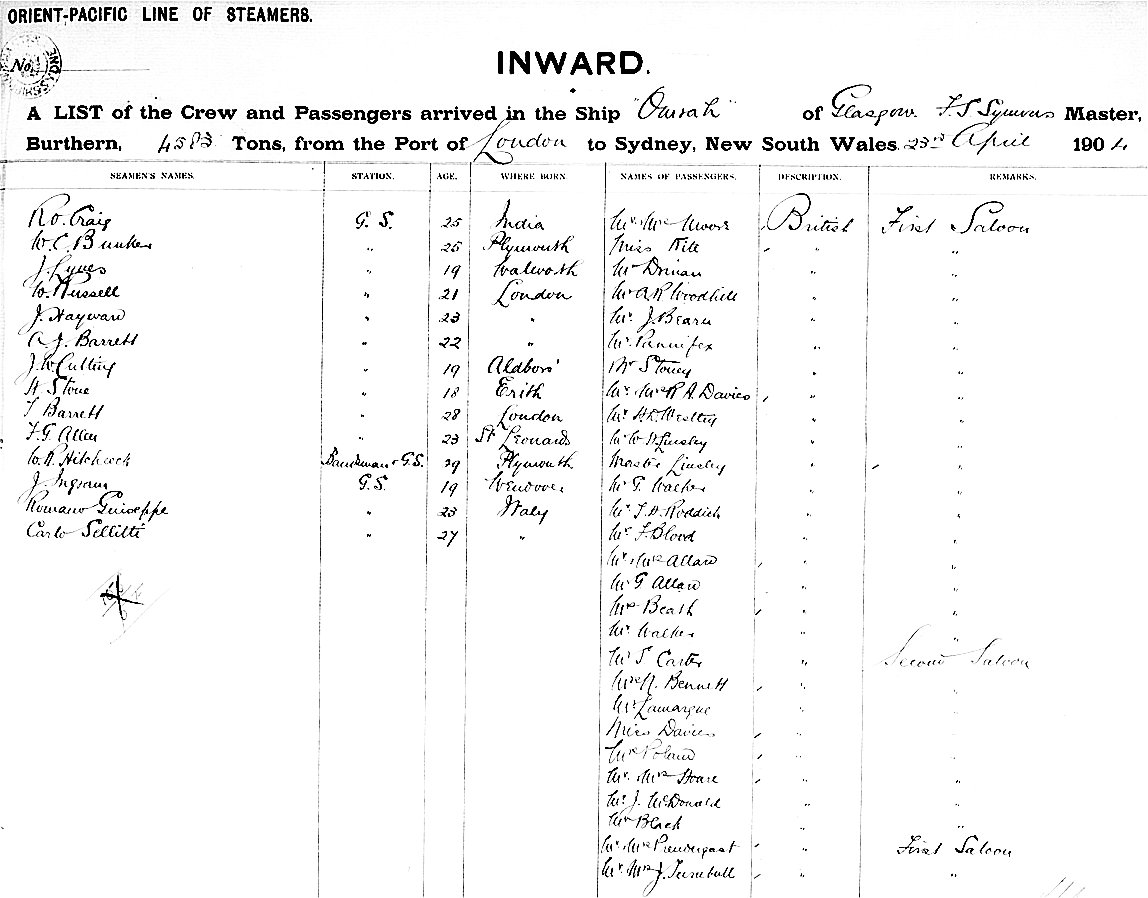 ORIENT-PACIFIC LINE OF STEAMERS.
No.
INWARD.
A LIST of the Crew and Passengers arrived in the Ship "Omrah" of Glasgow. F.S. Symons Master,
Burthern, 4583 Tons, from the Port of London to Sydney, New South Wales 23rd April 1904
SEAMEN'S NAMES. STATION. AGE. WHERE BORN. NAMES OF PASSENGERS. DESCRIPTION. REMARKS.
R.O. Craig G.S. 25 India Mr. Mrs Moore British First Saloon
W.C. Bunker " 25 Plymouth Miss " "
J. Lynes " 19 Walworth Mr " "
W. Russell " 21 London Mr A R Woodhill " "
J. Hayward " 23 " Mr. J. Bearn " "
A.J. Barrett " 22 " Mr. Pannifex " "
J.W. Cutting " 19 Aldboro' Mr Stoney " "
H Stone " 18 Erith Mr. Mrs R A Davies " "
T Barrett " 28 London Mr. H.L. Westley " "
F.G. Allen " 23 St Leonards Mr W H Linsley " "
W.H. Hitchcock Bandsman & G.S. 29 Plymouth Master Linsley " "
J. Ingram G.S. 19 Wendover Mr G. Walker " "
Romano Guiseppe " 23 Italy Mr J.H. Roddick " "
Carlo Sellitti " 27 " Mr F. Blood " "
Mr. Mrs Allan " "
Mr G Allan " "
Mrs Beath " "
Mr. Walker " "
Mr S Carter " Second Saloon
Mrs N. Bennett " "
Mr Lamargue " "
Miss Davies " "
Mrs Poland " "
Mr. Mrs Hoare " "
Mr. J. McDonald " "
Mr Black " "
Mr. Mrs Prendergast " First Saloon
Mr. Mrs J. Turnbull " "